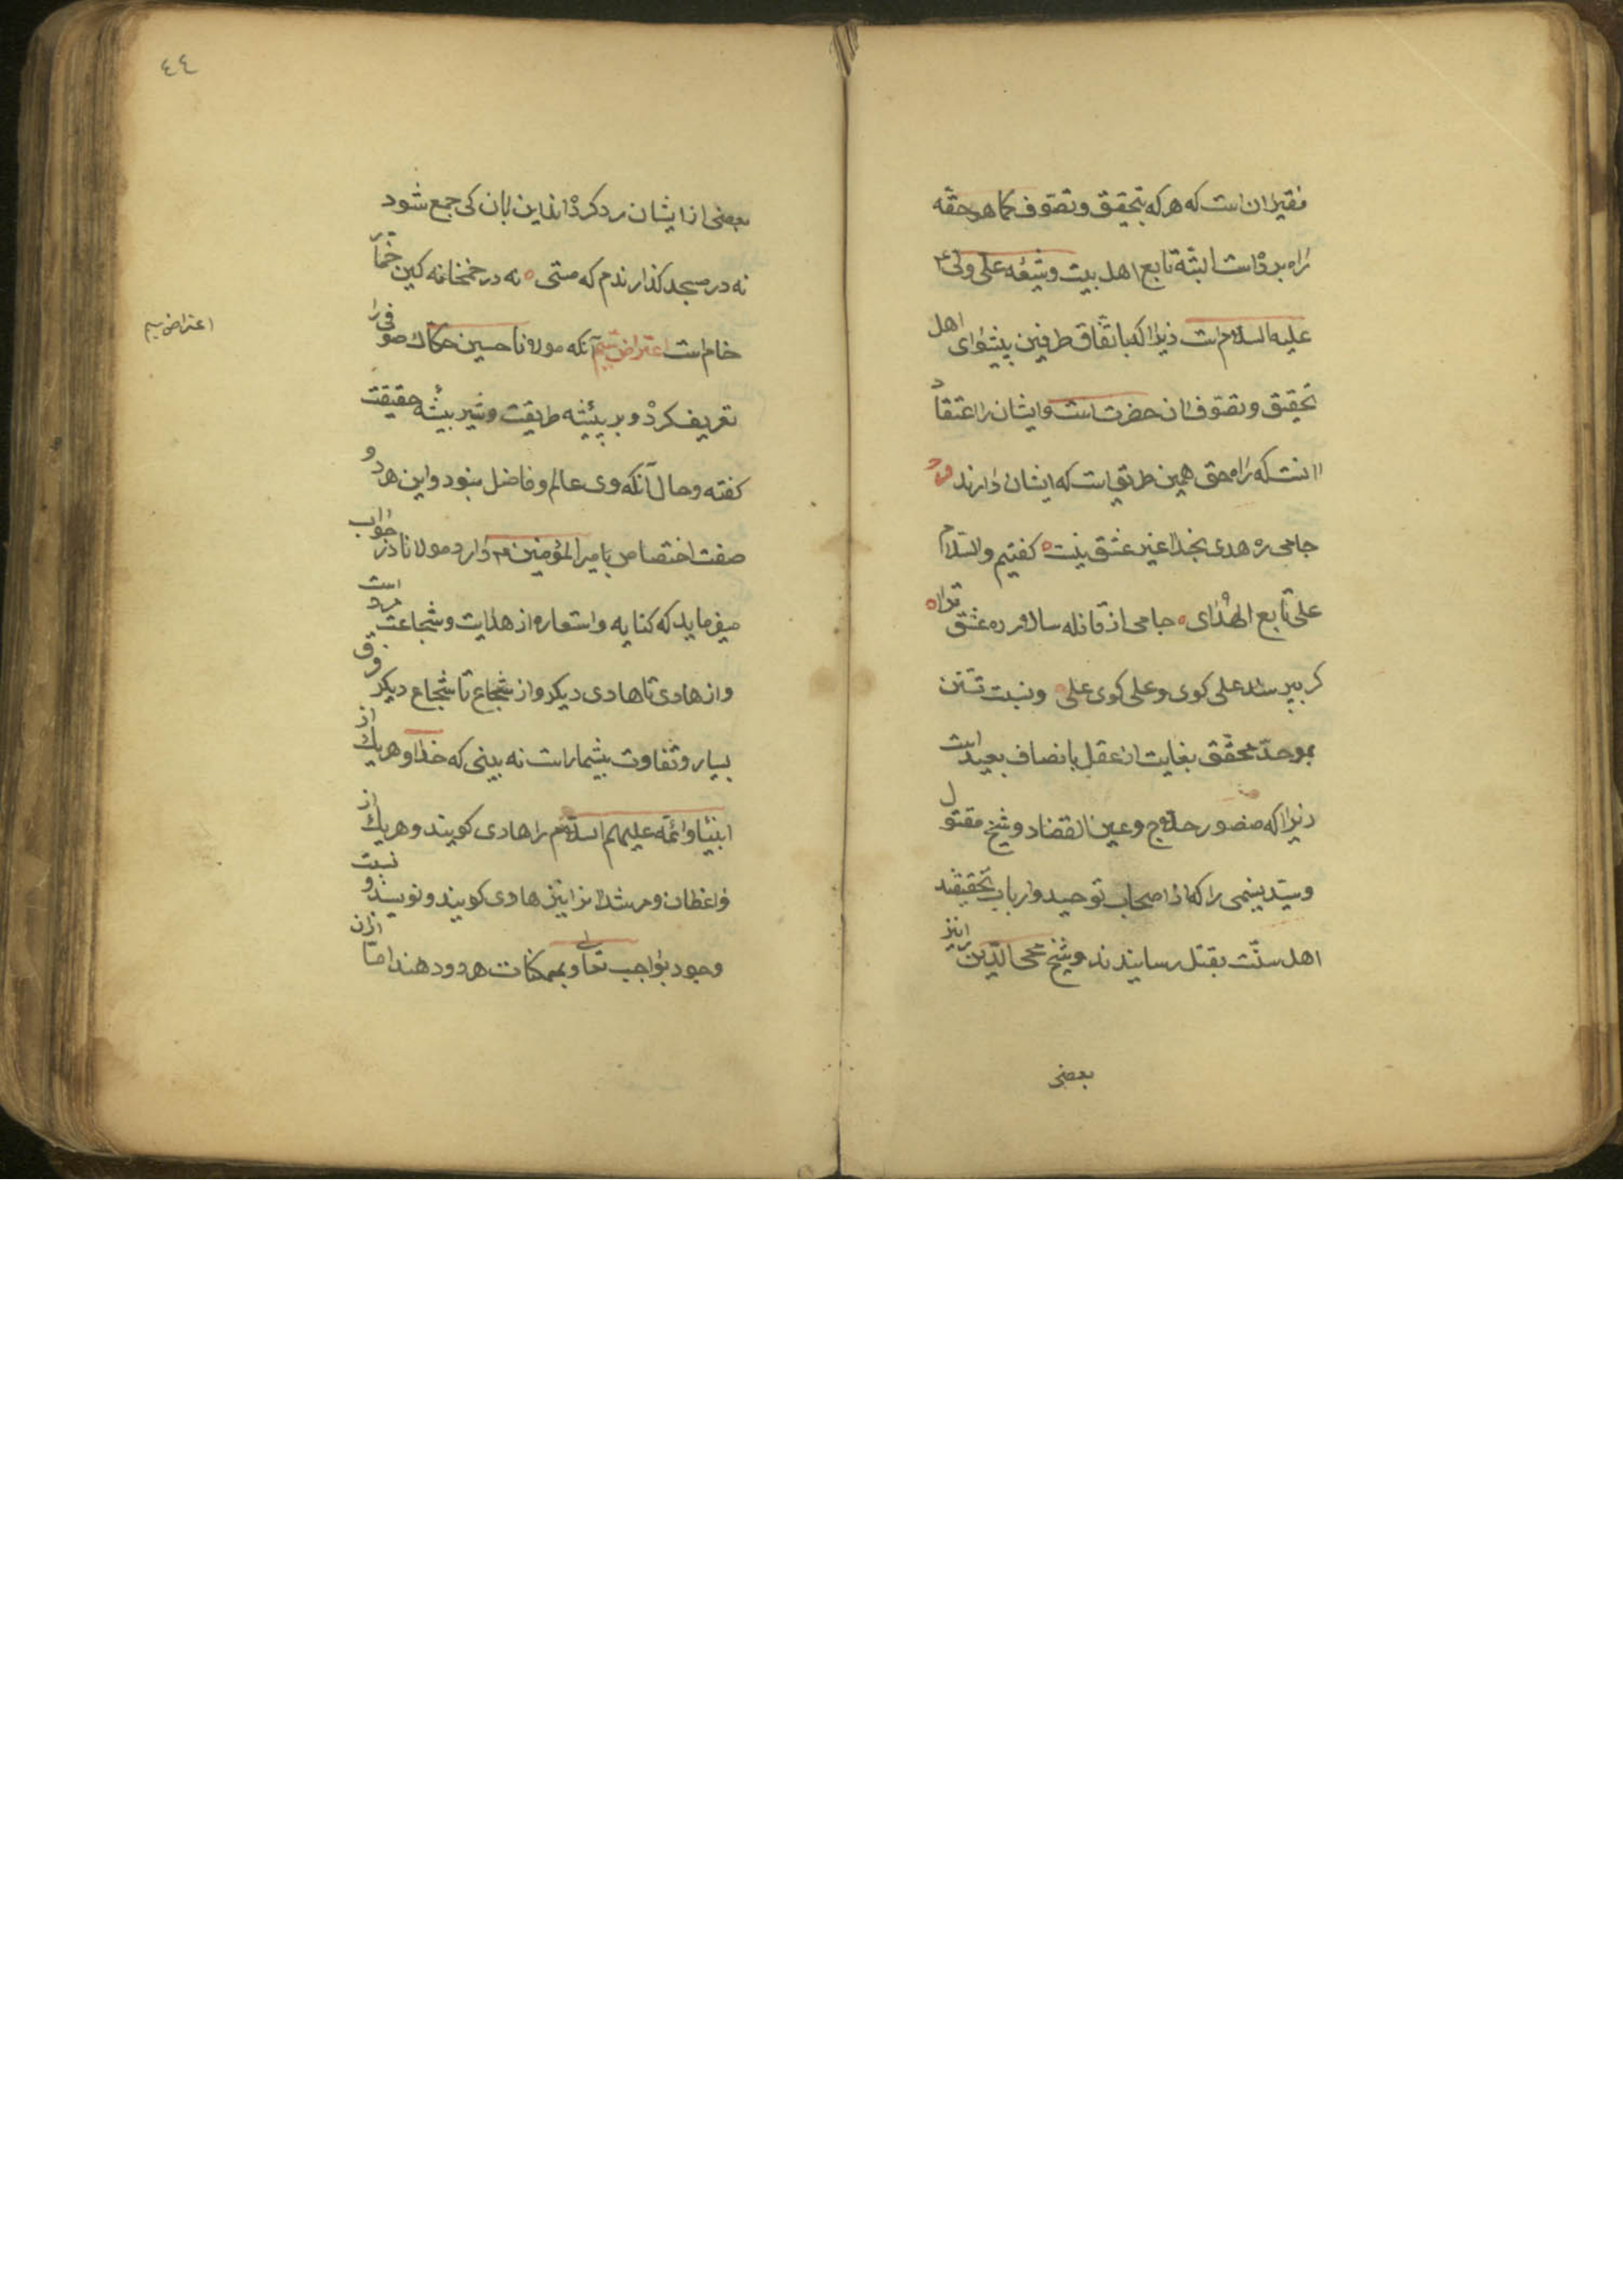 فقیر آن است که هرکه بتحقیق و تصوف کما هو حقه
راه برده است البته تابع اهل بیت و شیعه علی ولی
علیه السلام است زیرا که باتفاق طرفین پیشوای اهل
تحقیق و تصوف آن حضرت است و ایشان را اعتقاد
آنست که راه حق همین طریق است که ایشان دارند
جامی ره هدی بخدا غیر عشق نیست گفتیم والسلام
علی تابع الهدای جامی از قافله سالار ره عشق ترا
گر بپرسند علی گوی و علی گوی علی و نسبت تسنن
بموحد محقق بغایت از عقل با انصاف بعید است
زیرا که منصور حلاج و عین القضاة و شیخ مقتول
و سید نسیمی را که از اصحاب توحید و ارباب تحقیقند
اهل سنت بقتل رسانیدند و شیخ محی الدین را نیز
بعضی
٤٤
بعضی از ایشان رد کرده اند این بآن کی جمع شود
نه در مسجد گذارندم که مستی نه در خمخانه کین خمار
خام است اعتراض سیم آنکه مولانا حسین حکاک صوفی را
تعریف کرده و ببر بیشه طریقت و شیر بیشه حقیقت
گفته و حال آنکه وی عالم و فاضل نبود و این هر دو
صفت اختصاص بامیر المؤمنین ع دارد مولانا در جواب
میفرماید که کنایه و استعاره از هدایت و شجاعت است
و از هادی تا هادی دیگر و از شجاع تا شجاع دیگر فرق
بسیار و تفاوت بیشمار است نه بینی که خدا و هریک از
انبیا و ائمه علیهم السلام را هادی گویند و هریک از
واعظان و مرشدان را نیز هادی گویند و نویسند و نسبت
وجود بواجب تعالی و بممکنات هر دو دهند اما ازان
اعتراض سیم